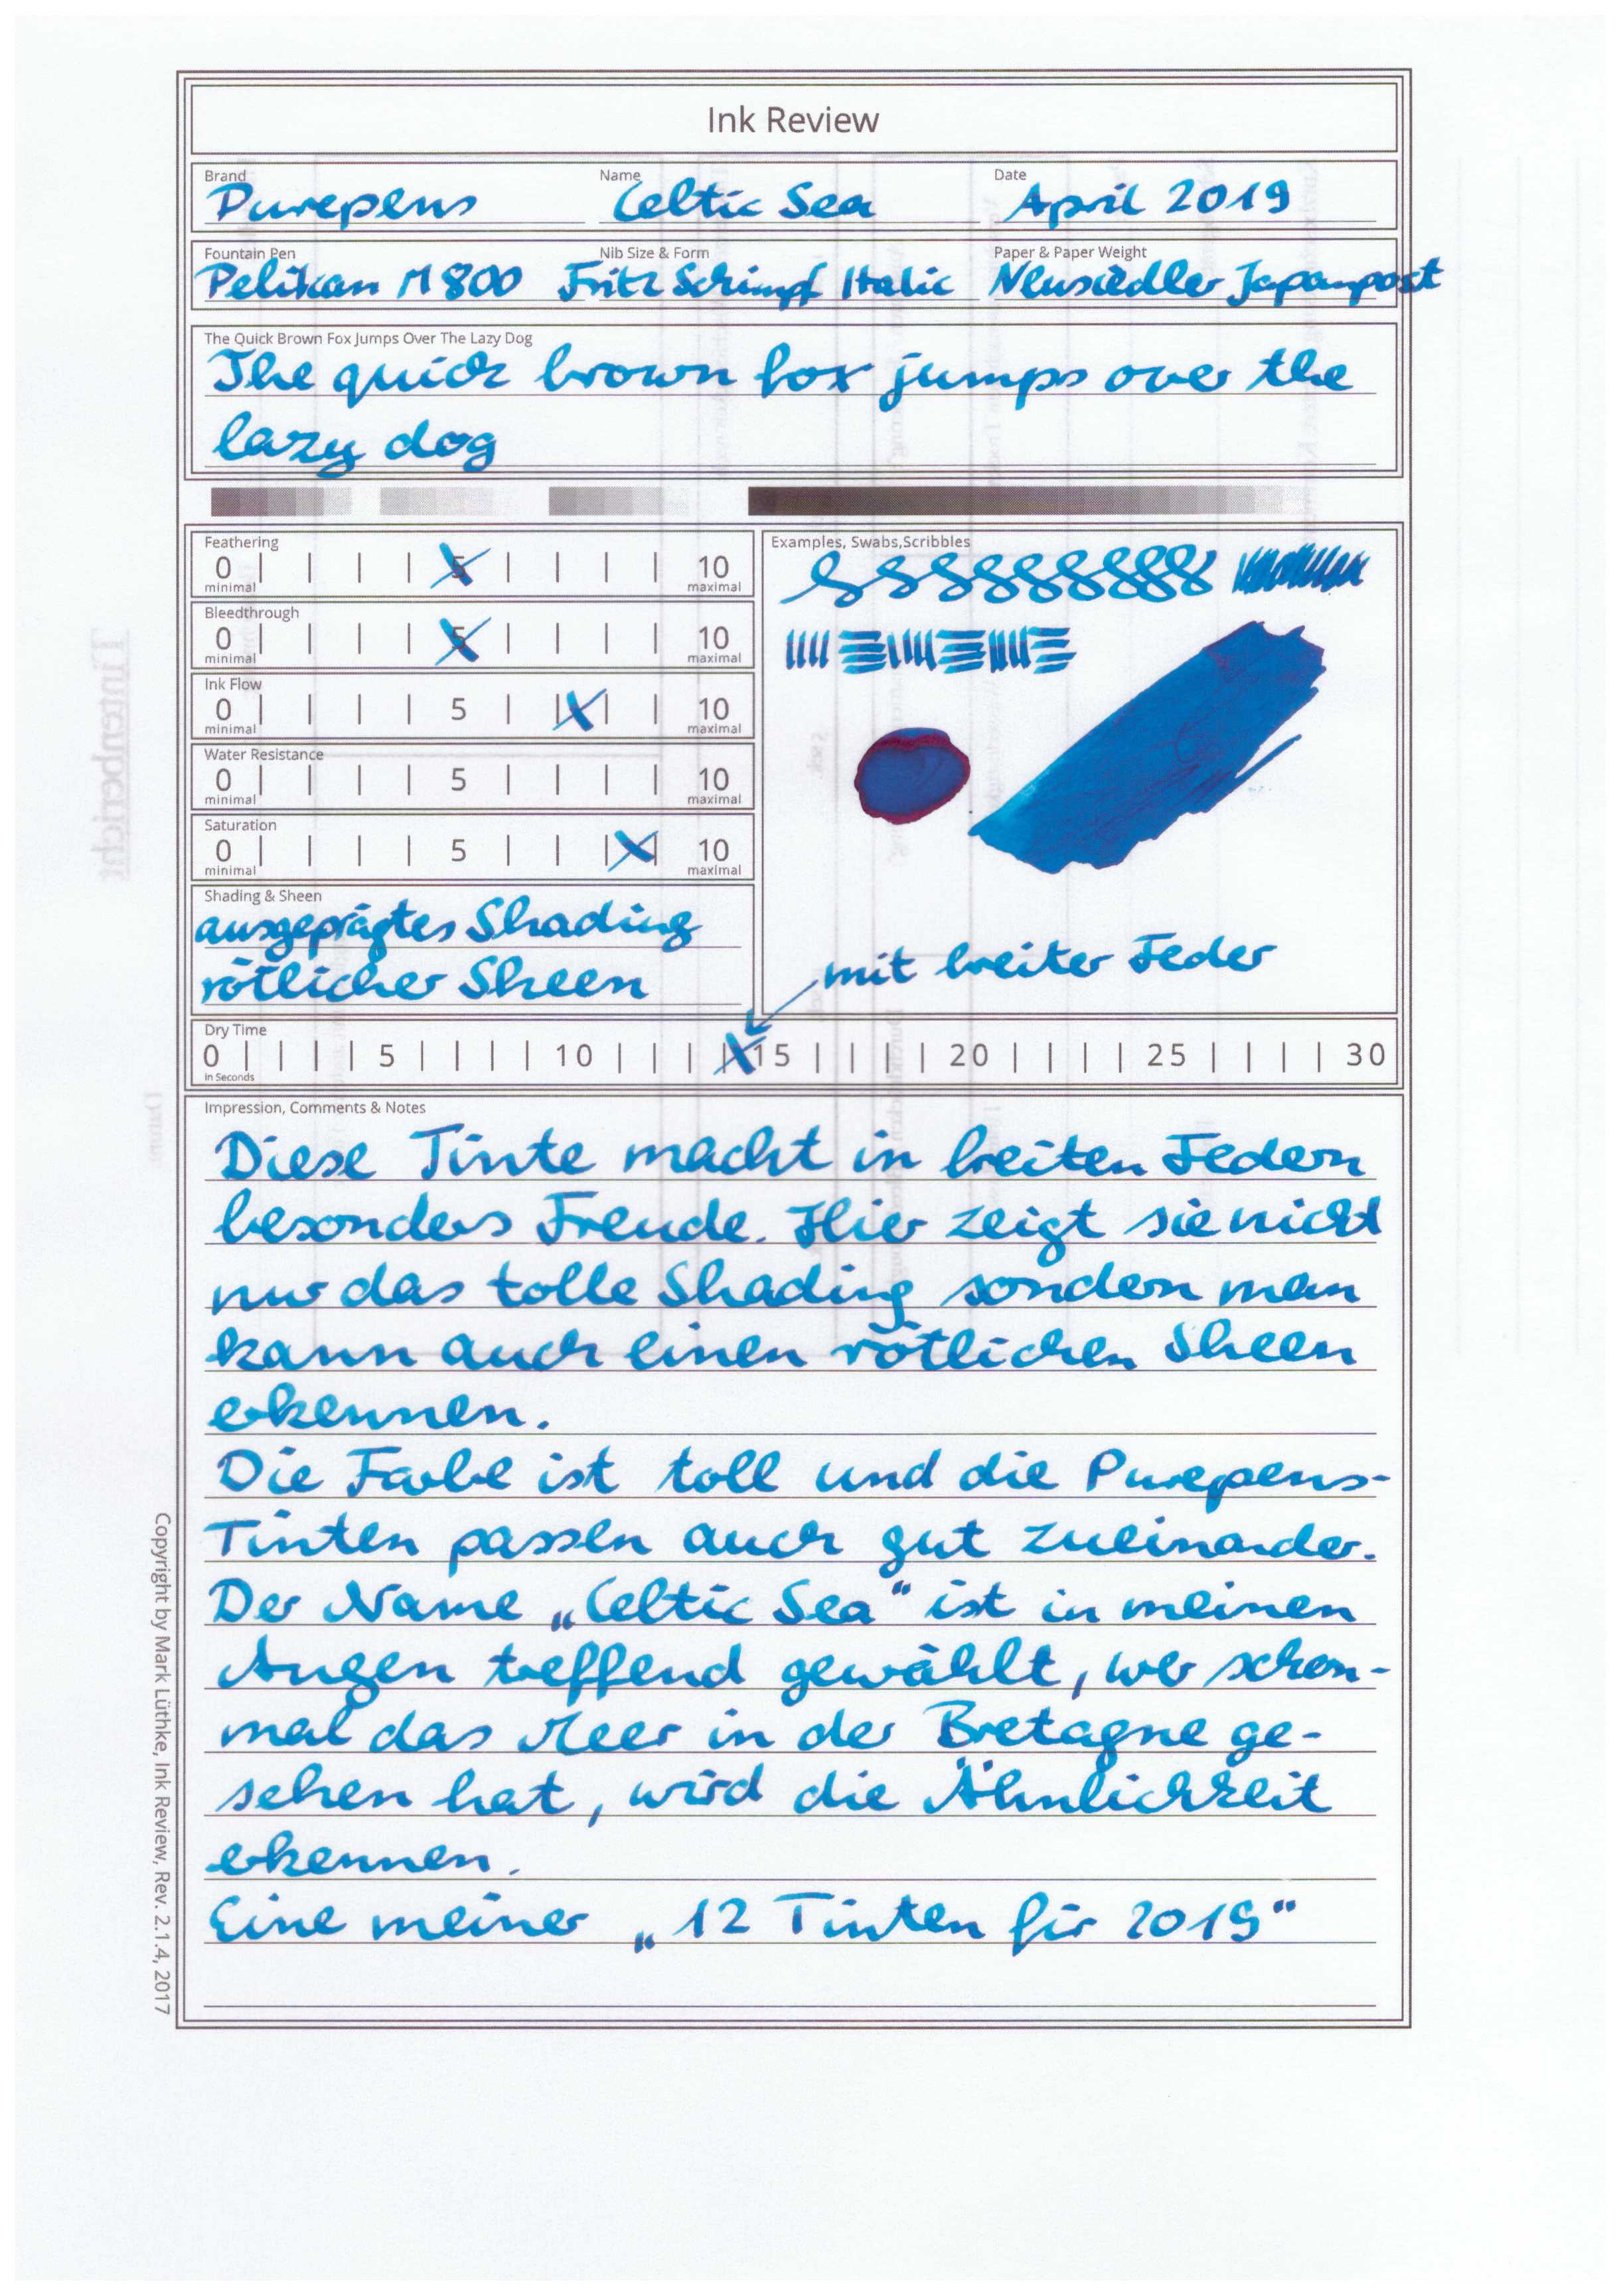 Ink Review
Brand Name Date
Purepens Celtic Sea April 2019
Fountain Pen Nib Size & Form Paper & Paper Weight
Pelikan M800 Fritz Schimpf Italic Neusiedler Japanpost
The Quick Brown Fox Jumps Over The Lazy Dog
The quick brown fox jumps over the
lazy dog
Feathering
0 | | | | 5 | | | | 10
minimal maximal
Bleedthrough
0 | | | | 5 | | | | 10
minimal maximal
Ink Flow
0 | | | | 5 | | | | 10
minimal maximal
Water Resistance
0 | | | | 5 | | | | 10
minimal maximal
Saturation
0 | | | | 5 | | | | 10
minimal maximal
Shading & Sheen
ausgeprägtes Shading
rötlicher Sheen
Examples, Swabs,Scribbles
mit breiter Feder
Dry Time
0 | | | | 5 | | | | 10 | | | | 15 | | | | 20 | | | | 25 | | | | 30
in Seconds
Impression, Comments & Notes
Diese Tinte macht in breiten Federn
besonders Freude. Hier zeigt sie nicht
nur das tolle Shading sondern man
kann auch einen rötlichen Sheen
erkennen.
Die Farbe ist toll und die Purepens-
Tinten passen auch gut zueinander.
Der Name „Celtic Sea“ ist in meinen
Augen treffend gewählt, wer schon-
mal das Meer in der Bretagne ge-
sehen hat, wird die Ähnlichkeit
erkennen.
Eine meiner „12 Tinten für 2019“
Copyright by Mark Lüthke, Ink Review, Rev. 2.1.4, 2017
Tintenbericht